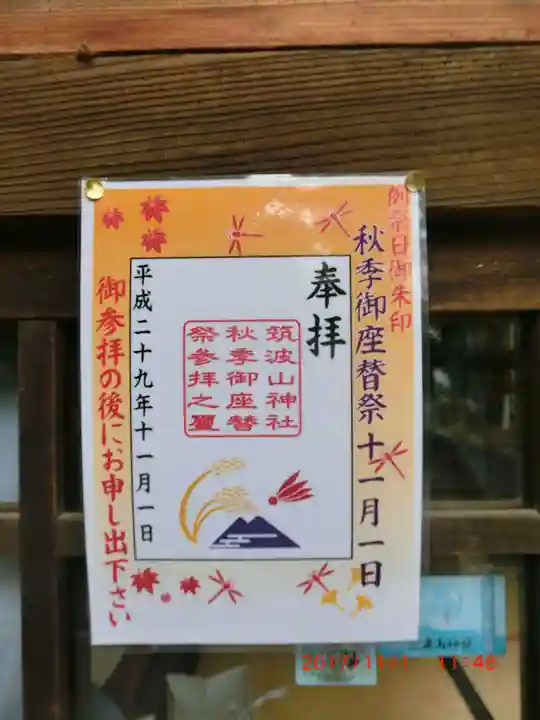 例祭日御朱印
秋季御座替祭十一月一日
奉拝
筑波山神社
秋季御座替
祭参拝之璽
平成二十九年十一月一日
御参拝の後にお申し出下さい
2017/11/1 11:46